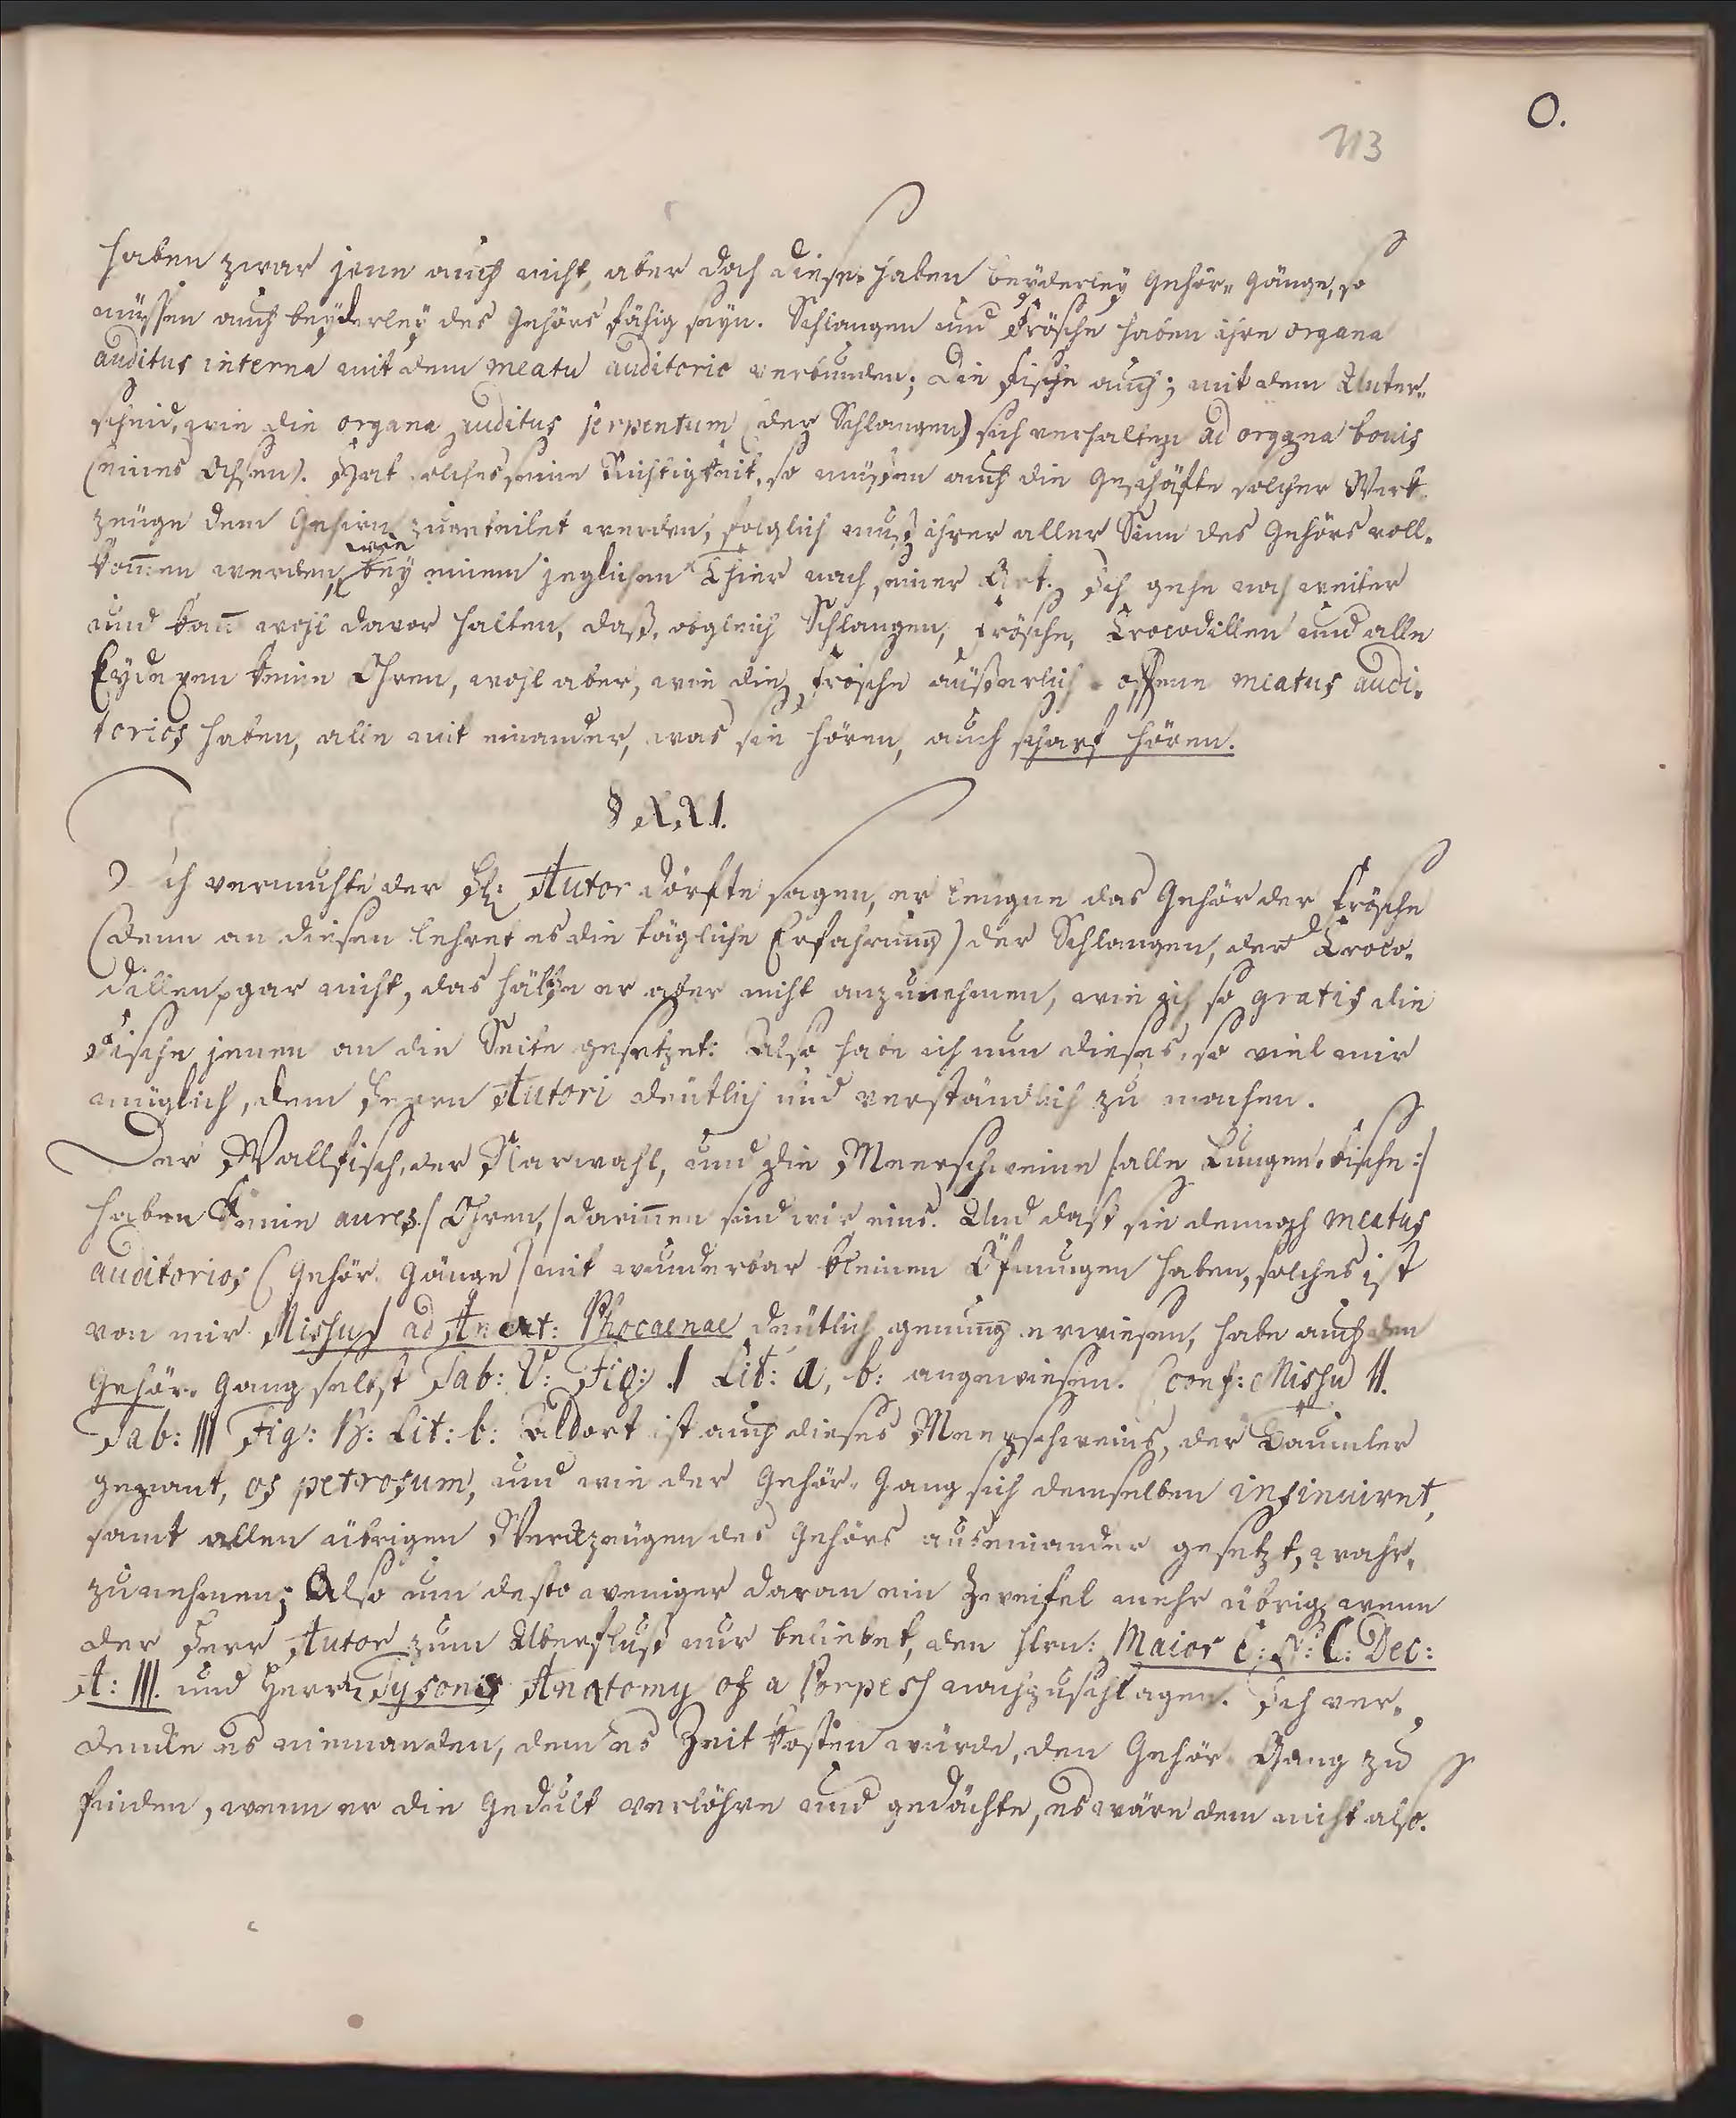 O.
113
haben zwar jene auch nicht, aber doch diese. haben beyderley Gehör-Gänge, so
müssen auch beyderley des Gehörs fähig seyn. Schlangen und Frösche haben ihre organa
auditus interna mit dem meatu auditorio verbunden; Die Fische auch; mit dem Unter-
scheid, wie die organa auditus serpentum (der Schlangen) sich verhalten ad organa bovis
(eines Ochsen). Hat solches seine Richtigkeit, so müssen auch die Geschäfte solcher Werk-
zeüge dem Gehirn zuertheilet werden, folglich muß ihrer aller Sinn des Gehörs voll-
kom̄en werden, wie bey einem jeglichen Thier nach seiner Art. Ich gehe noch weiter
und kan̄ wohl davor halten, daß, obgleich Schlangen, Frösche, Crocodillen und alle
Eydexen keine Ohren, wohl aber, wie die Frösche äüßerlich offene meatus audi-
torios haben, alle mit einander, was sie hören, auch scharf hören.
§ XXI.
Ich vermuhte der H: Autor dörfte sagen, er leugne das Gehör der Frösche
(denn an diesen lehret es die tägliche Erfahrung) der Schlangen, der Croco-
dillen gar nicht, das hätte er aber nicht anzunehmen, wie ich so gratis die
Fische jenen an die Seite gesetzet: Also habe ich nun dieses, so viel mir
müglich, dem Herrn Autori deütlich und verständlich zu machen.
Der Wallfisch, der Narwahl, und die Meerschweine /:alle Lungen-Fische:/
haben keine aures / Ohren,/ darin̄en sind wir eins. Und daß sie dennoch meatus
auditorios (Gehör-Gänge) mit wunderbar kleinen Öfnungen haben, solches ist
von mir Missu I ad Anat: Phocaenae deütlich genung erwiesen, habe auch den
Gehör-Gang selbst Tab: V: Fig: I Lit: a, b: angewiesen. Conf: Missu II.
Tab: III Fig: B: Lit: b: Aldort ist auch dieses Meerschweins, der Taumler
genant, os petrosum, und wie der Gehör-Gang sich demselben insinuiret,
samt allen übrigen Werckzeugen des Gehörs auseinander gesetzt, wahr-
zunehmen; Also um desto weniger daran ein Zweifel mehr übrig, wenn
der Herr Autor zum Uberfluß nur beliebet, den Hrn: Maior E: N: C: Dec:
A: III. und Herrn Tysonis Anatomy of a Porpess nachzuschlagen. Ich ver-
dencke es niemanden, dem es Zeit kosten würde, den Gehör-Gang zu
finden, wenn er die Gedult verlöhre und gedächte, es wäre dem nicht also.